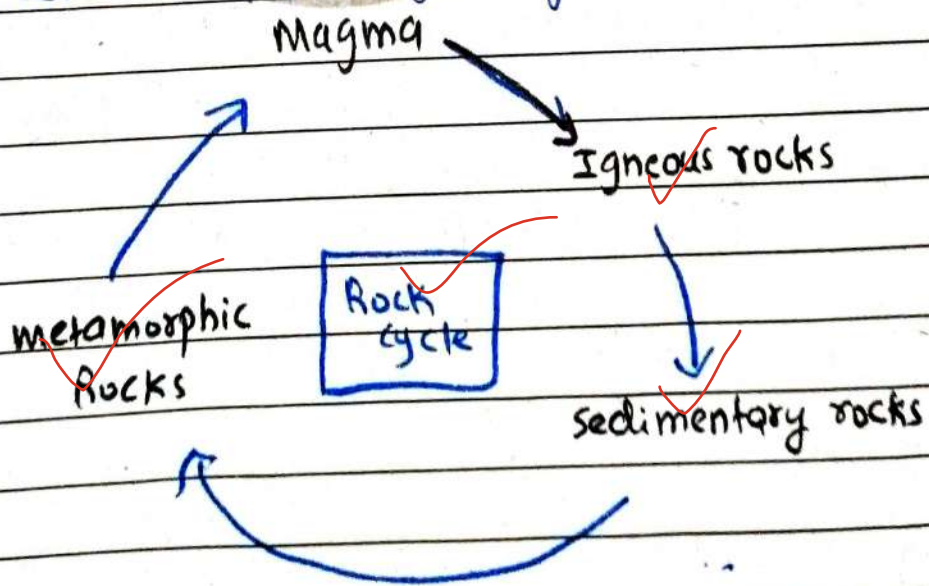 Magma
Igneous rocks
Rock
cycle
metamorphic
Rocks
sedimentary rocks